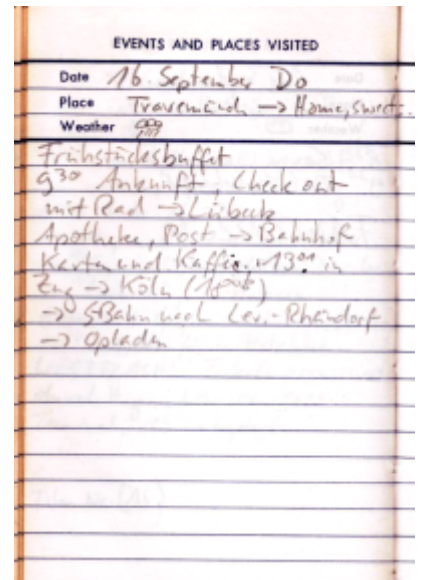 EVENTS AND PLACES VISITED
Date 16. September Do
Place Travemünde → Home, sweets.
Weather
Frühstücksbuffet
9³⁰ Ankunft, Check out
mit Rad → Lübeck
Apotheke, Post → Bahnhof
Karten und Kaffee. 13⁰¹ in
Zug → Köln (18⁰⁸)
→ S-Bahn nach Lev.-Rheindorf
→ Opladen